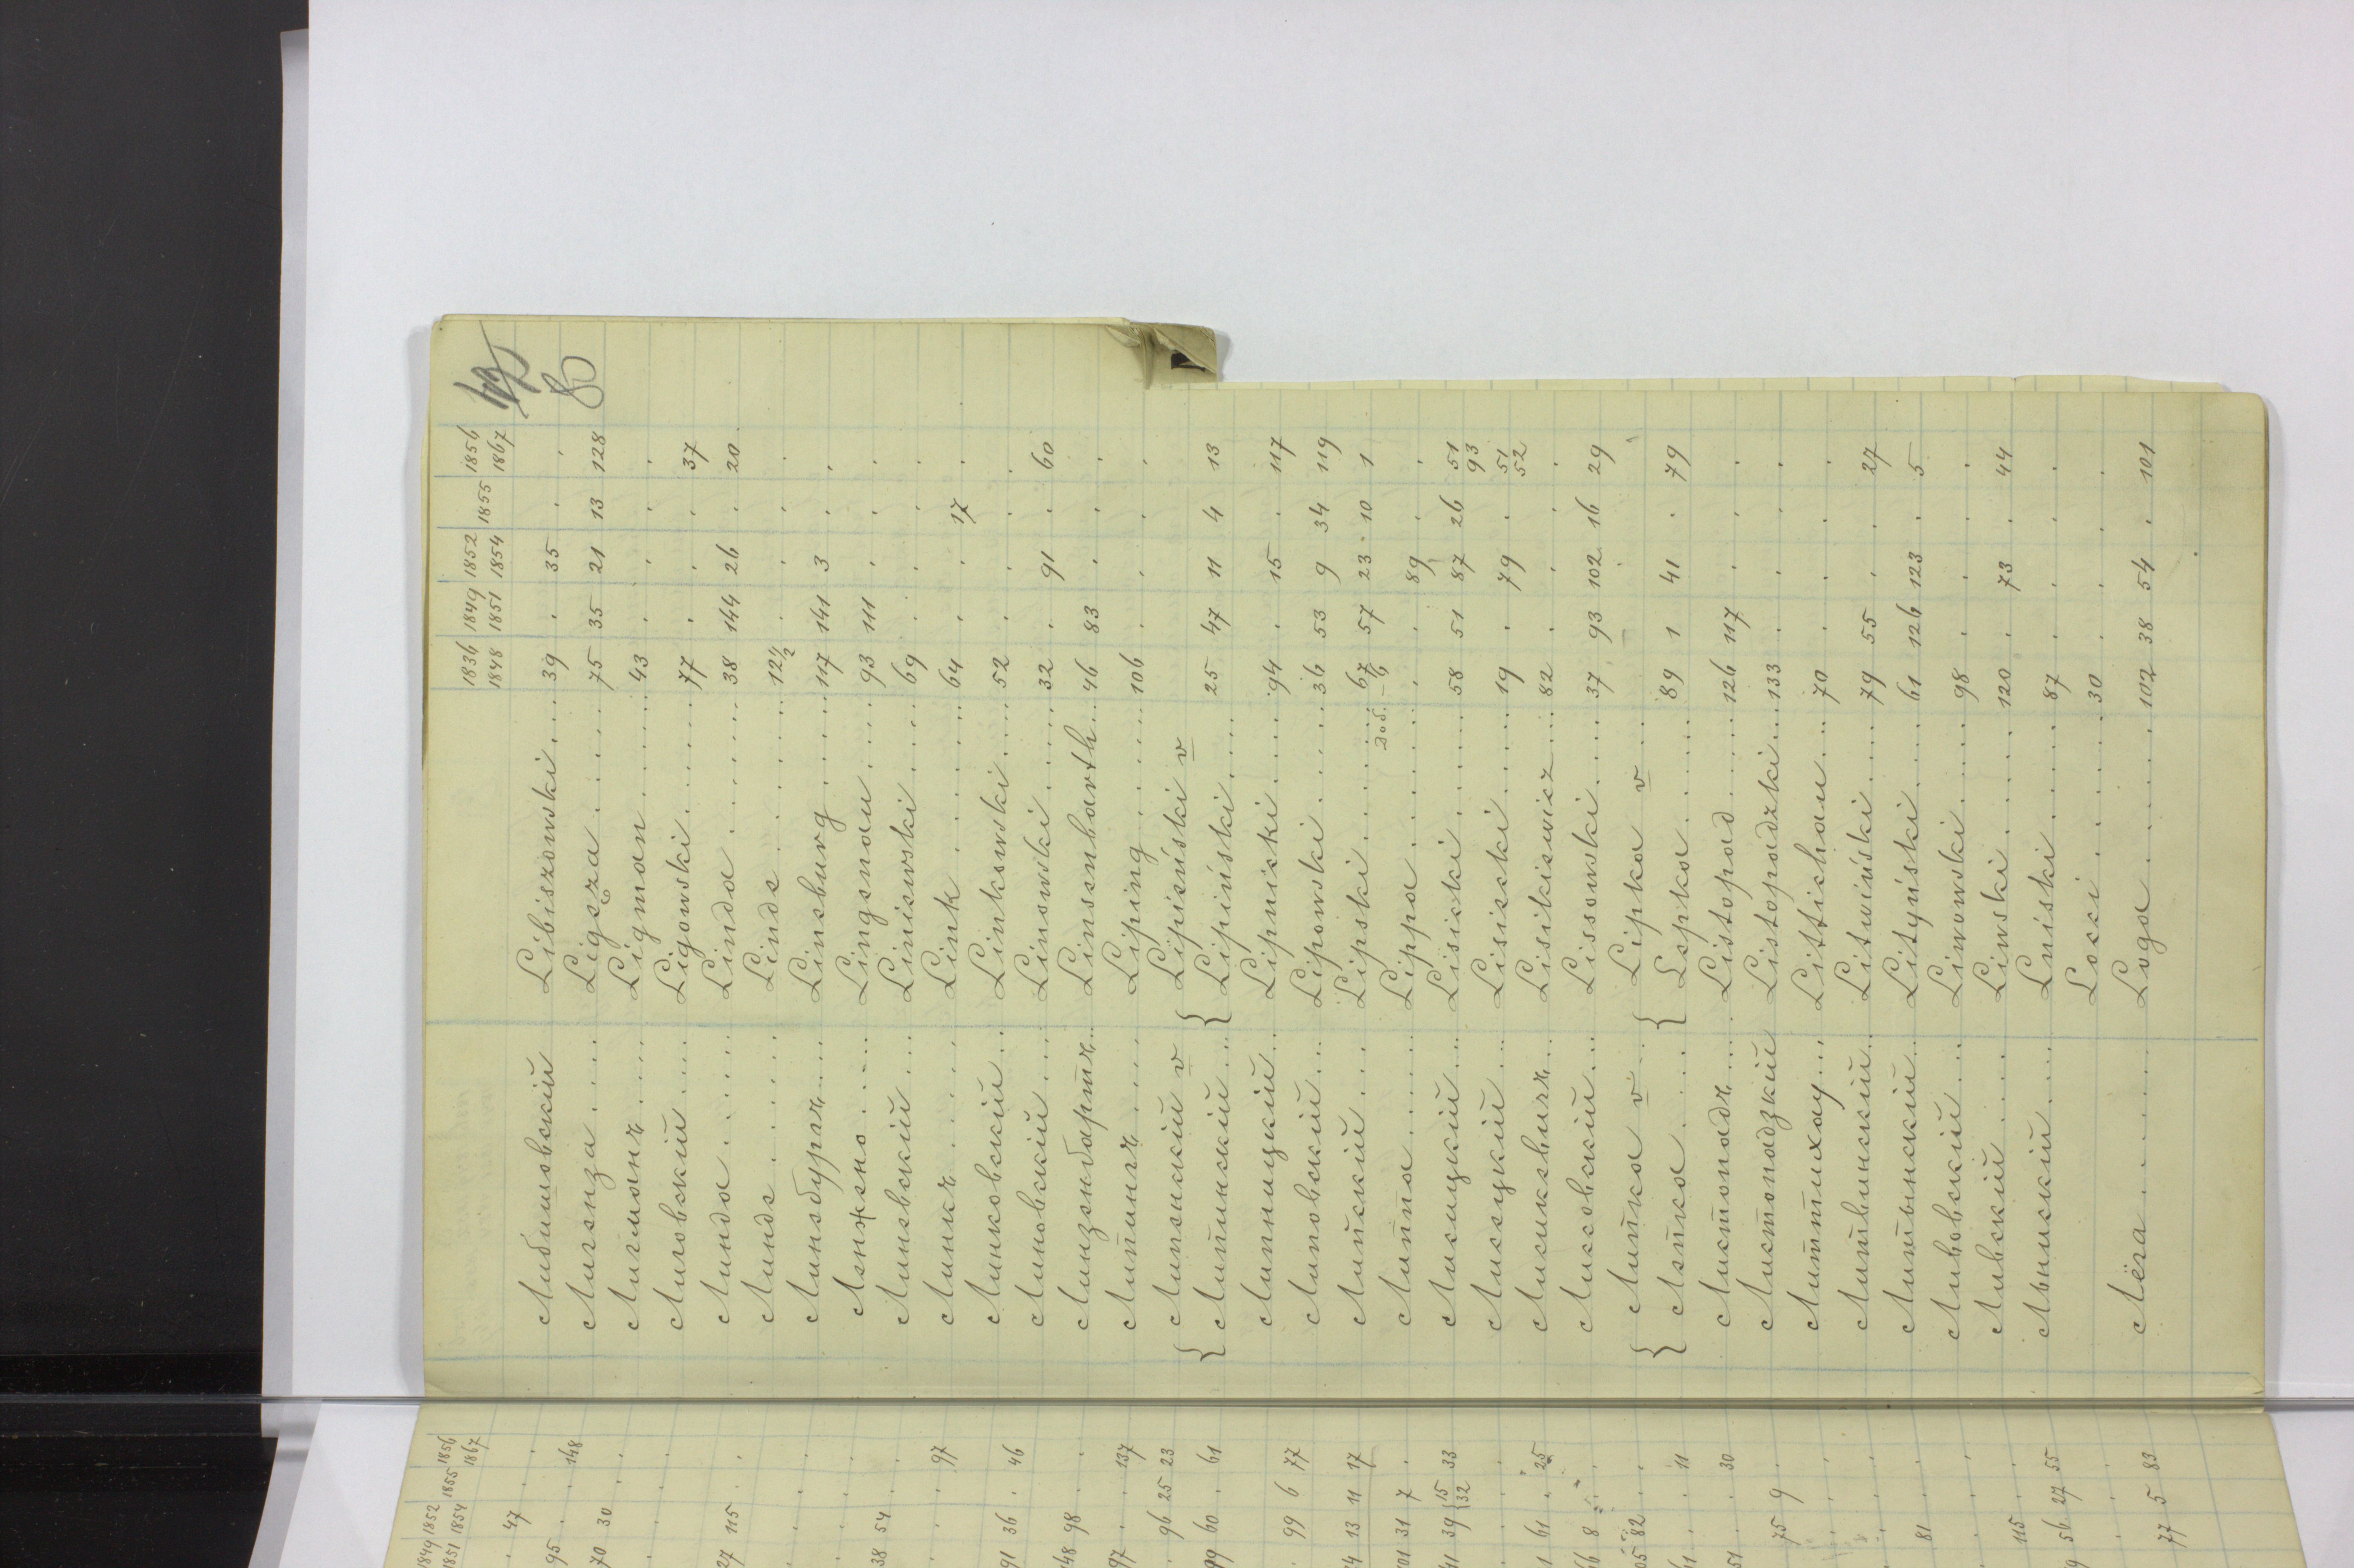 1836 1849 1852 1855 1856
1848 1851 1854 1867
80
Либишовскій Libiszowski.... 39 . 35 . .
Лигенза .... Ligęza ...... 75 35 21 13 128
Лигманъ .... Ligman ..... 43 . . . .
Лиговскій .... Ligowski ..... 77 . . . 37
Линда ..... Linda ...... 38 144 26 . 20
Линде ..... Linde ...... 12½ . . . .
Линебургъ .... Lineburg ..... 117 141 3 . .
Ленжено .... Lingenau .... 93 111 . . .
Линевскій ... Liniewski .... 69 . . . .
Линкъ .... Link ...... 64 . . 17 .
Линковскій .. Linkowski .... 52 . . . .
Линовскій ... Linowski .... 32 . 91 . 60
Линзенбартъ... Linsenbarth... 46 83 . . .
Липингъ .... Liping ..... 106 . . . .
{ Липенскій v Lipieński v
{ Липинскій ... { Lipiński .... 25 47 11 4 13
Липницкій ... Lipnicki .... 94 . 15 . 117
Липовскій ... Lipowski .... 36 53 9 34 119
Липскій ... Lipski ..... 67 57 23 10 1
доб. – 6
Липпа .... Lippa ..... . . 89 . .
Лисицкій ... Lisicki .... 58 51 87 26 51
93
Лисецкій ... Lisiecki .... 19 . 79 . 51
52
Лисикевичъ ... Lisikiewicz ... 82 . . . .
Лиссовскій ... Lissowski .... 37 93 102 16 29
{ Липка v .. Lipka v ..
{ Лепка .... { Lepka .... 89 1 41 . 79
Листопадъ .... Listopad .... 126 117 . . .
Листопадзкій Listopadzki... 133 . . . .
Литтихау ... Littichau ... 70 . . . .
Литвинскій .. Litwiński .... 79 55 . . 27
Литынскій .. Lityński .... 61 126 123 . 5
Ливовскій ... Liwowski .... 98 . . . .
Ливскій .... Liwski ..... 120 . 73 . 44
Лнискій ... Lniski ..... 87 . . . .
Locci ..... 30 . . . .
Лёга ..... Loga ..... 102 38 54 . 101
1849 1852 1855 1856
1851 1854 1867
. 47 . .
95 . . 148
70 30 . .
27 115 . .
38 54 . .
. . . 97
91 36 . 46
48 98 . .
97 . . 137
. 96 25 23
99 60 . 61
. 99 6 77
13 11 17
101 31 7 .
41 39 {15 33
{32
1 61 . 25
66 8 . .
05 82 . .
. . 11
51 . . 30
75 9 .
81 . .
115 . .
56 27 55
77 5 83